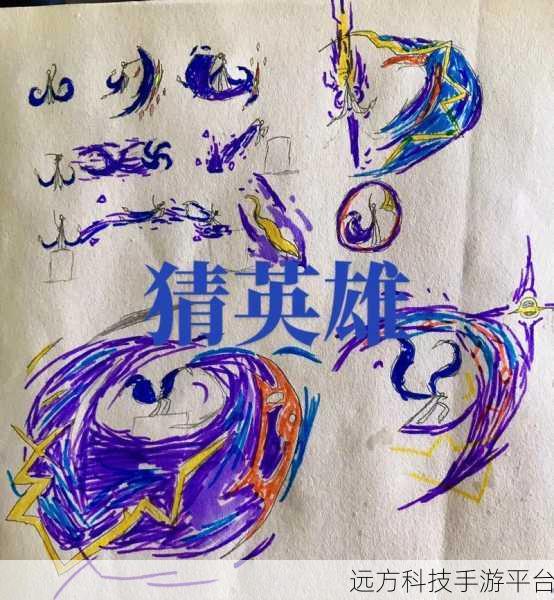 猜英雄
远方科技手游平台